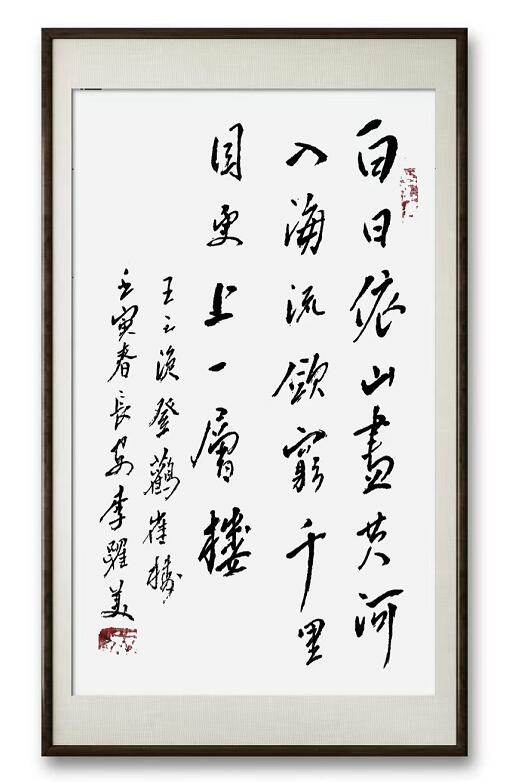 白日依山盡黄河
入海流欲窮千里
目更上一層樓
王之渙登鸛雀樓
壬寅春長安李躍美